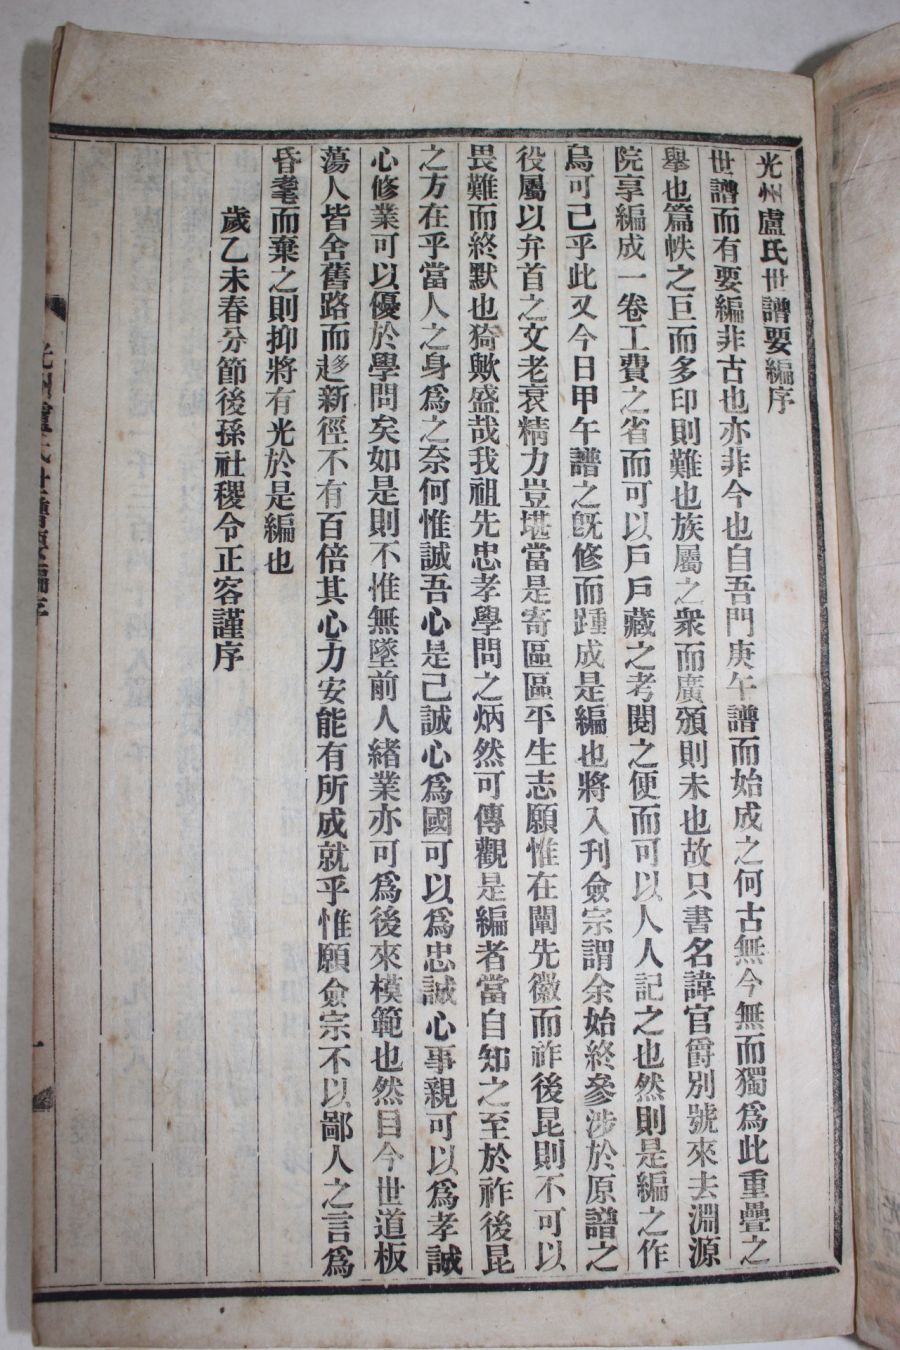 光州盧氏世譜要編序
世譜而有要編非古也亦非今也自吾門庚午譜而始成之何古無今無而獨爲此重疊之
擧也篇帙之巨而多印則難也族屬之衆而廣頒則未也故只書名諱官爵別號來去淵源
院享編成一卷工費之省而可以戶戶藏之考閱之便而可以人人記之也然則是編之作
烏可已乎此又今日甲午譜之旣修而踵成是編也將入刊僉宗謂余始終參涉於原譜之
役屬以弁首之文老衰精力豈堪當是寄區區平生志願惟在闡先徽而祚後昆則不可以
畏難而終默也猗歟盛哉我祖先忠孝學問之炳然可傳觀是編者當自知之至於祚後昆
之方在乎當人之身爲之奈何惟誠吾心是已誠心爲國可以爲忠誠心事親可以爲孝誠
心修業可以優於學問矣如是則不惟無墜前人緖業亦可爲後來模範也然目今世道板
蕩人皆舍舊路而趍新徑不有百倍其心力安能有所成就乎惟願僉宗不以鄙人之言爲
昏耄而棄之則抑將有光於是編也
歲乙未春分節後孫社稷令正容謹序
光州盧氏世譜要編序
一